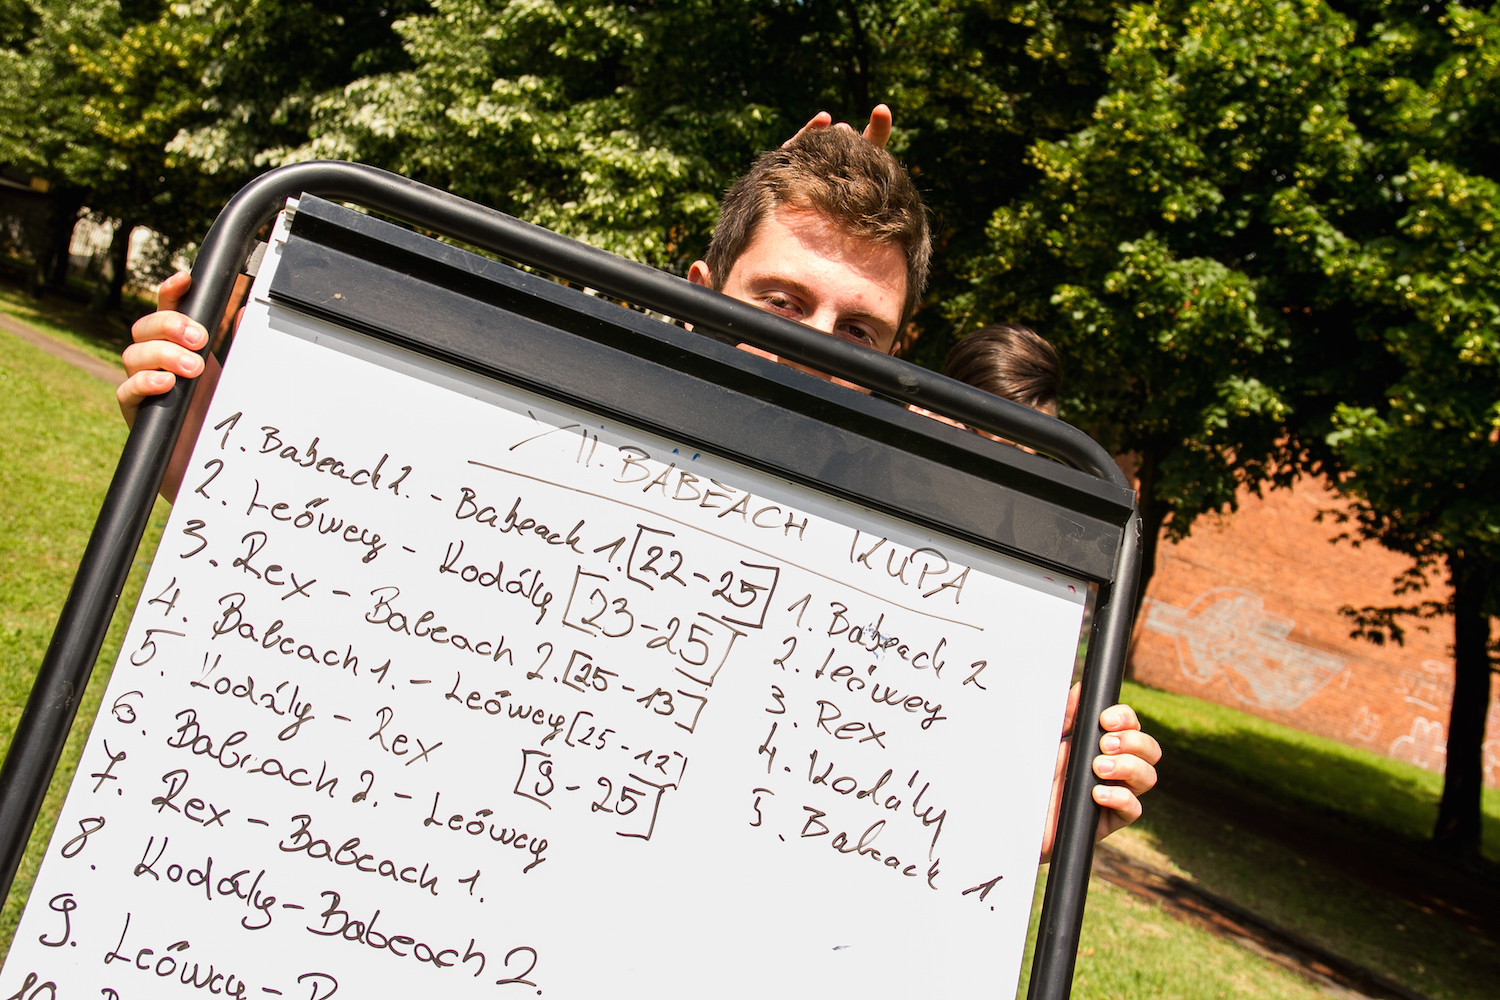 XII. BABEACH KUPA
1. Babeach 2. - Babeach 1. [22-25]
2. Leőwey - Kodály [23-25]
3. Rex - Babeach 2. [25-13]
4. Babeach 1. - Leőwey [25-12]
5. Kodály - Rex [9-25]
6. Babeach 2. - Leőwey
7. Rex - Babeach 1.
8. Kodály - Babeach 2.
9. Leőwey -
10.
1. Babeach 2
2. Leőwey
3. Rex
4. Kodály
5. Babeach 1.